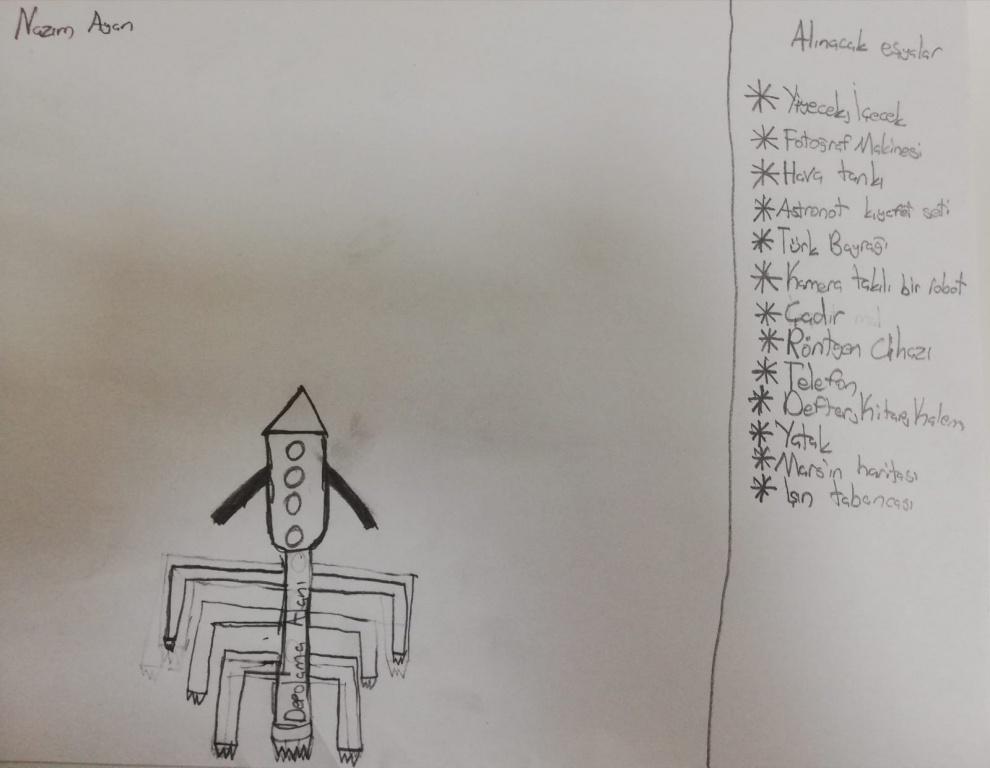 Nazım Ayan
Alınacak eşyalar
Yiyecek, İçecek
Fotoğraf Makinesi
Hava tankı
Astronot kıyafet seti
Türk Bayrağı
Kamera takılı bir robot
Çadır
Röntgen Cihazı
Telefon
Defter, Kitap, Kalem
Yatak
Mars'ın haritası
Işın tabancası
Depolama Alanı